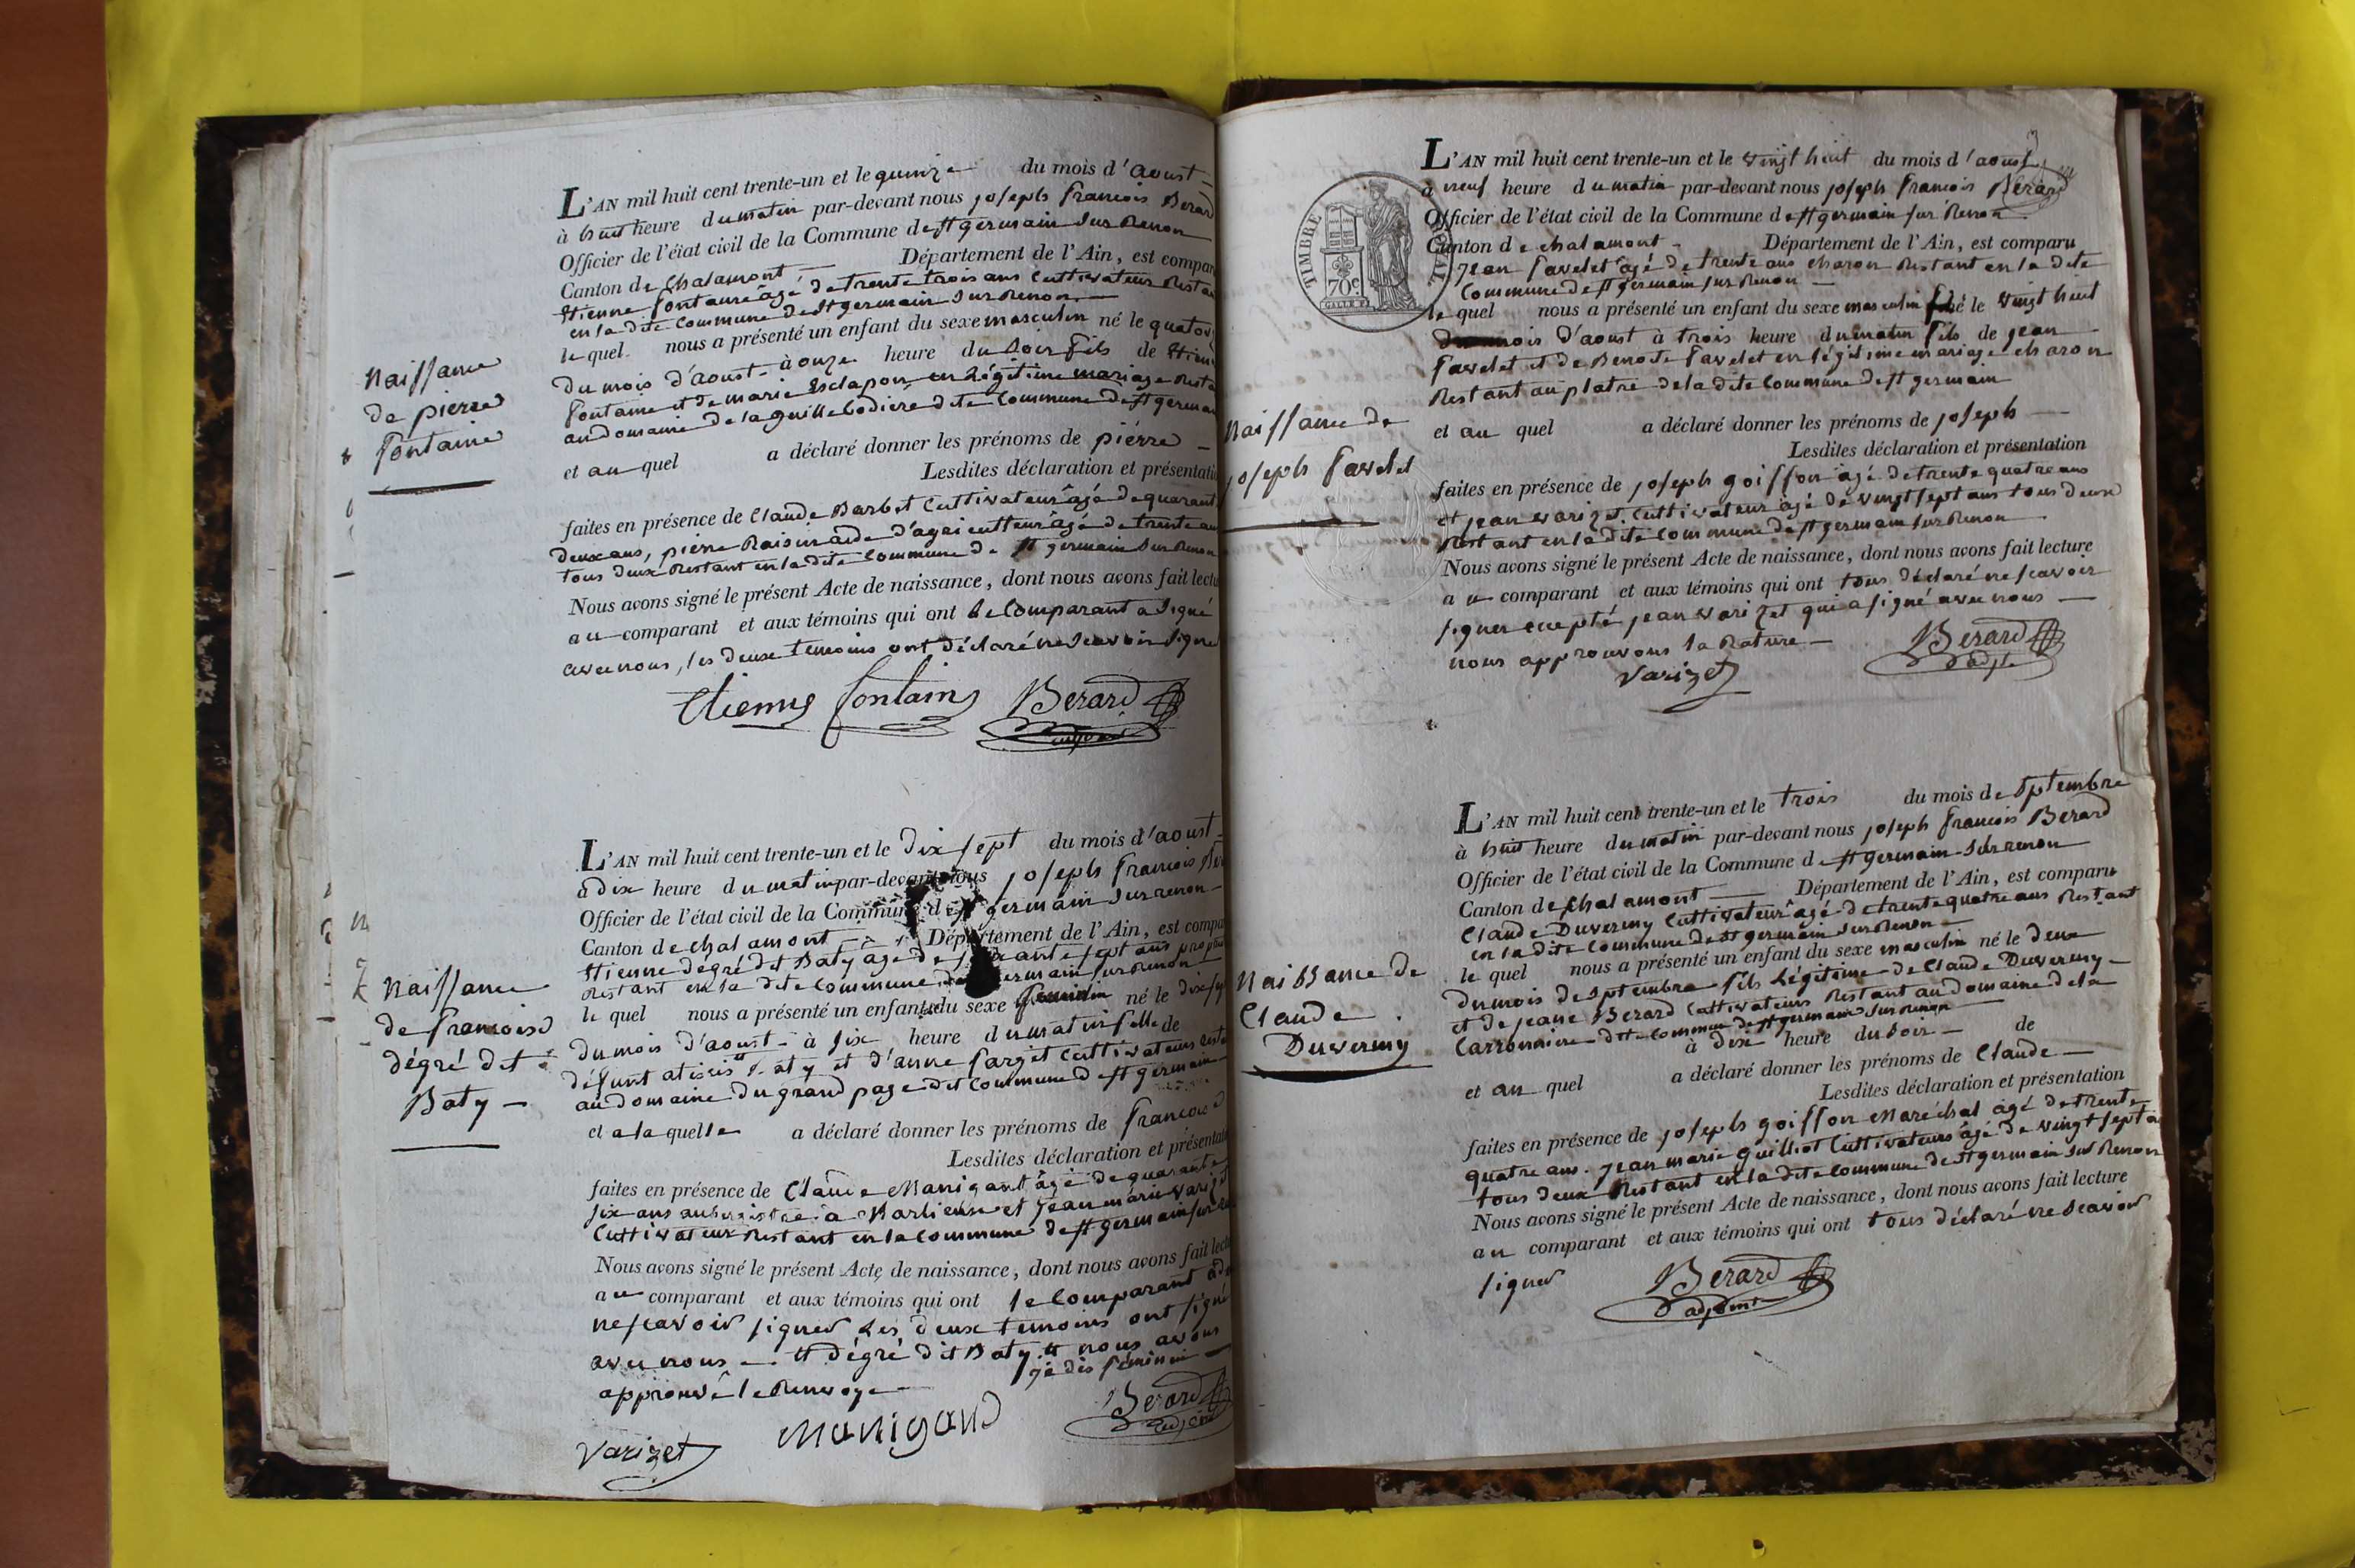 Naissance
de pierre
fontaine
L'AN mil huit cent trente-un et le quinze du mois d'aoust
à huit heure du matin par-devant nous joseph francois Berard
Officier de l'état civil de la Commune de st germain sur Renon
Canton de Chalamont Département de l'Ain, est compar
Etienne fontaine âgé de trente trois ans Cultivateur Resta
en la dite Commune de st germain sur Renon
le quel nous a présenté un enfant du sexe masculin né le quator
du mois d'aoust à onze heure du Soir fils de Etien
fontaine et de marie Esclapon en Légitime mariage Resta
au domaine de la guillebodiere dite Commune de st germai
et au quel a déclaré donner les prénoms de piérre
Lesdites déclaration et présentati
faites en présence de Claude Barbet Cultivateur âgé de quarant
deux ans, pierre Raisin aide d'agriculteur âgé de trente an
tous deux Restant en la dite Commune de st germain sur Renon
Nous avons signé le présent Acte de naissance, dont nous avons fait lectu
au comparant et aux témoins qui ont le Comparant a signé
avec nous, les deux temoins ont déclaré ne scavoir signe
Etienne fontaine Berard
adjoint
Naissance
de francoise
dégré dit
Baty
L'AN mil huit cent trente-un et le dix sept du mois d'aoust
à dix heure du matin par-devant nous joseph francois Ber
Officier de l'état civil de la Commune de st germain sur renon
Canton de chalamont Département de l'Ain, est compa
Etienne dégré dit Baty age de ante sept ans prop
Restant en la dite Commune de germain sur Renon
le quel nous a présenté un enfant du sexe feminin né le dix sep
du mois d'aoust à six heure du matin fille de
défunt Baty et d'anne farget Cultivateurs rest
au domaine du grand page dit Commune de st germain
et a la quelle a déclaré donner les prénoms de francoise
Lesdites déclaration et présentati
faites en présence de Claude Manigant âgé de quarante
six ans aubergiste a Marlieux et jean marie varizet
Cultivateur Restant en la commune de st germain sur Re
Nous avons signé le présent Acte de naissance, dont nous avons fait lectu
au comparant et aux témoins qui ont le Comparant a dé
ne scavoir signer Les deux temoins ont signé
avec nous dégré dit Baty nous avons
approuvé le Renvoye je dis féminin
Varizet Manigand Berard
adjoint
TIMBRE ROYAL
70c
Naissance de
joseph favelet
L'AN mil huit cent trente-un et le vingt huit du mois d'aoust
à neuf heure du matin par-devant nous joseph francois Berard
Officier de l'état civil de la Commune de st germain sur Renon
Canton de chalamont Département de l'Ain, est comparu
jean favelet âgé de trente ans charon Restant en la dite
Commune de st germain sur Renon
le quel nous a présenté un enfant du sexe masculin né le vingt huit
du mois d'aoust à trois heure du matin fils de jean
favelet et de Benoite favelet en légitime mariage charon
Restant au platre de la dite Commune de st germain
et au quel a déclaré donner les prénoms de joseph
Lesdites déclaration et présentation
faites en présence de joseph goiffon âgé de trente quatre ans
et jean varizet Cultivateur âgé de vingt sept ans tous deux
Restant en la dite Commune de st germain sur Renon
Nous avons signé le présent Acte de naissance, dont nous avons fait lecture
au comparant et aux témoins qui ont tous déclaré ne scavoir
signer excepté jean varizet qui a signé avec nous
nous approuvons la Rature Berard
Varizet adjt
Naissance de
Claude
Duverny
L'AN mil huit cent trente-un et le trois du mois de septembre
à huit heure du matin par-devant nous joseph francois Berard
Officier de l'état civil de la Commune de st germain sur renon
Canton de chalamont Département de l'Ain, est comparu
Claude Duverny Cultivateur âgé de trente quatre ans Restant
en la dite Commune de st germain sur Renon
le quel nous a présenté un enfant du sexe masculin né le deux
du mois de septembre fils Légitime de Claude Duverny
et de jeane Berard Cultivateurs Restant au domaine de la
Carroniere dite commune de st germain sur Renon
à dix heure du Soir de
et au quel a déclaré donner les prénoms de Claude
Lesdites déclaration et présentation
faites en présence de joseph goiffon Maréchal âgé de trente
quatre ans. jean marie guilliot Cultivateurs âgé de vingt sept a
tous deux Restant en la dite Commune de st germain sur Renon
Nous avons signé le présent Acte de naissance, dont nous avons fait lecture
au comparant et aux témoins qui ont tous déclaré ne scavoir
signer Berard
adjoint